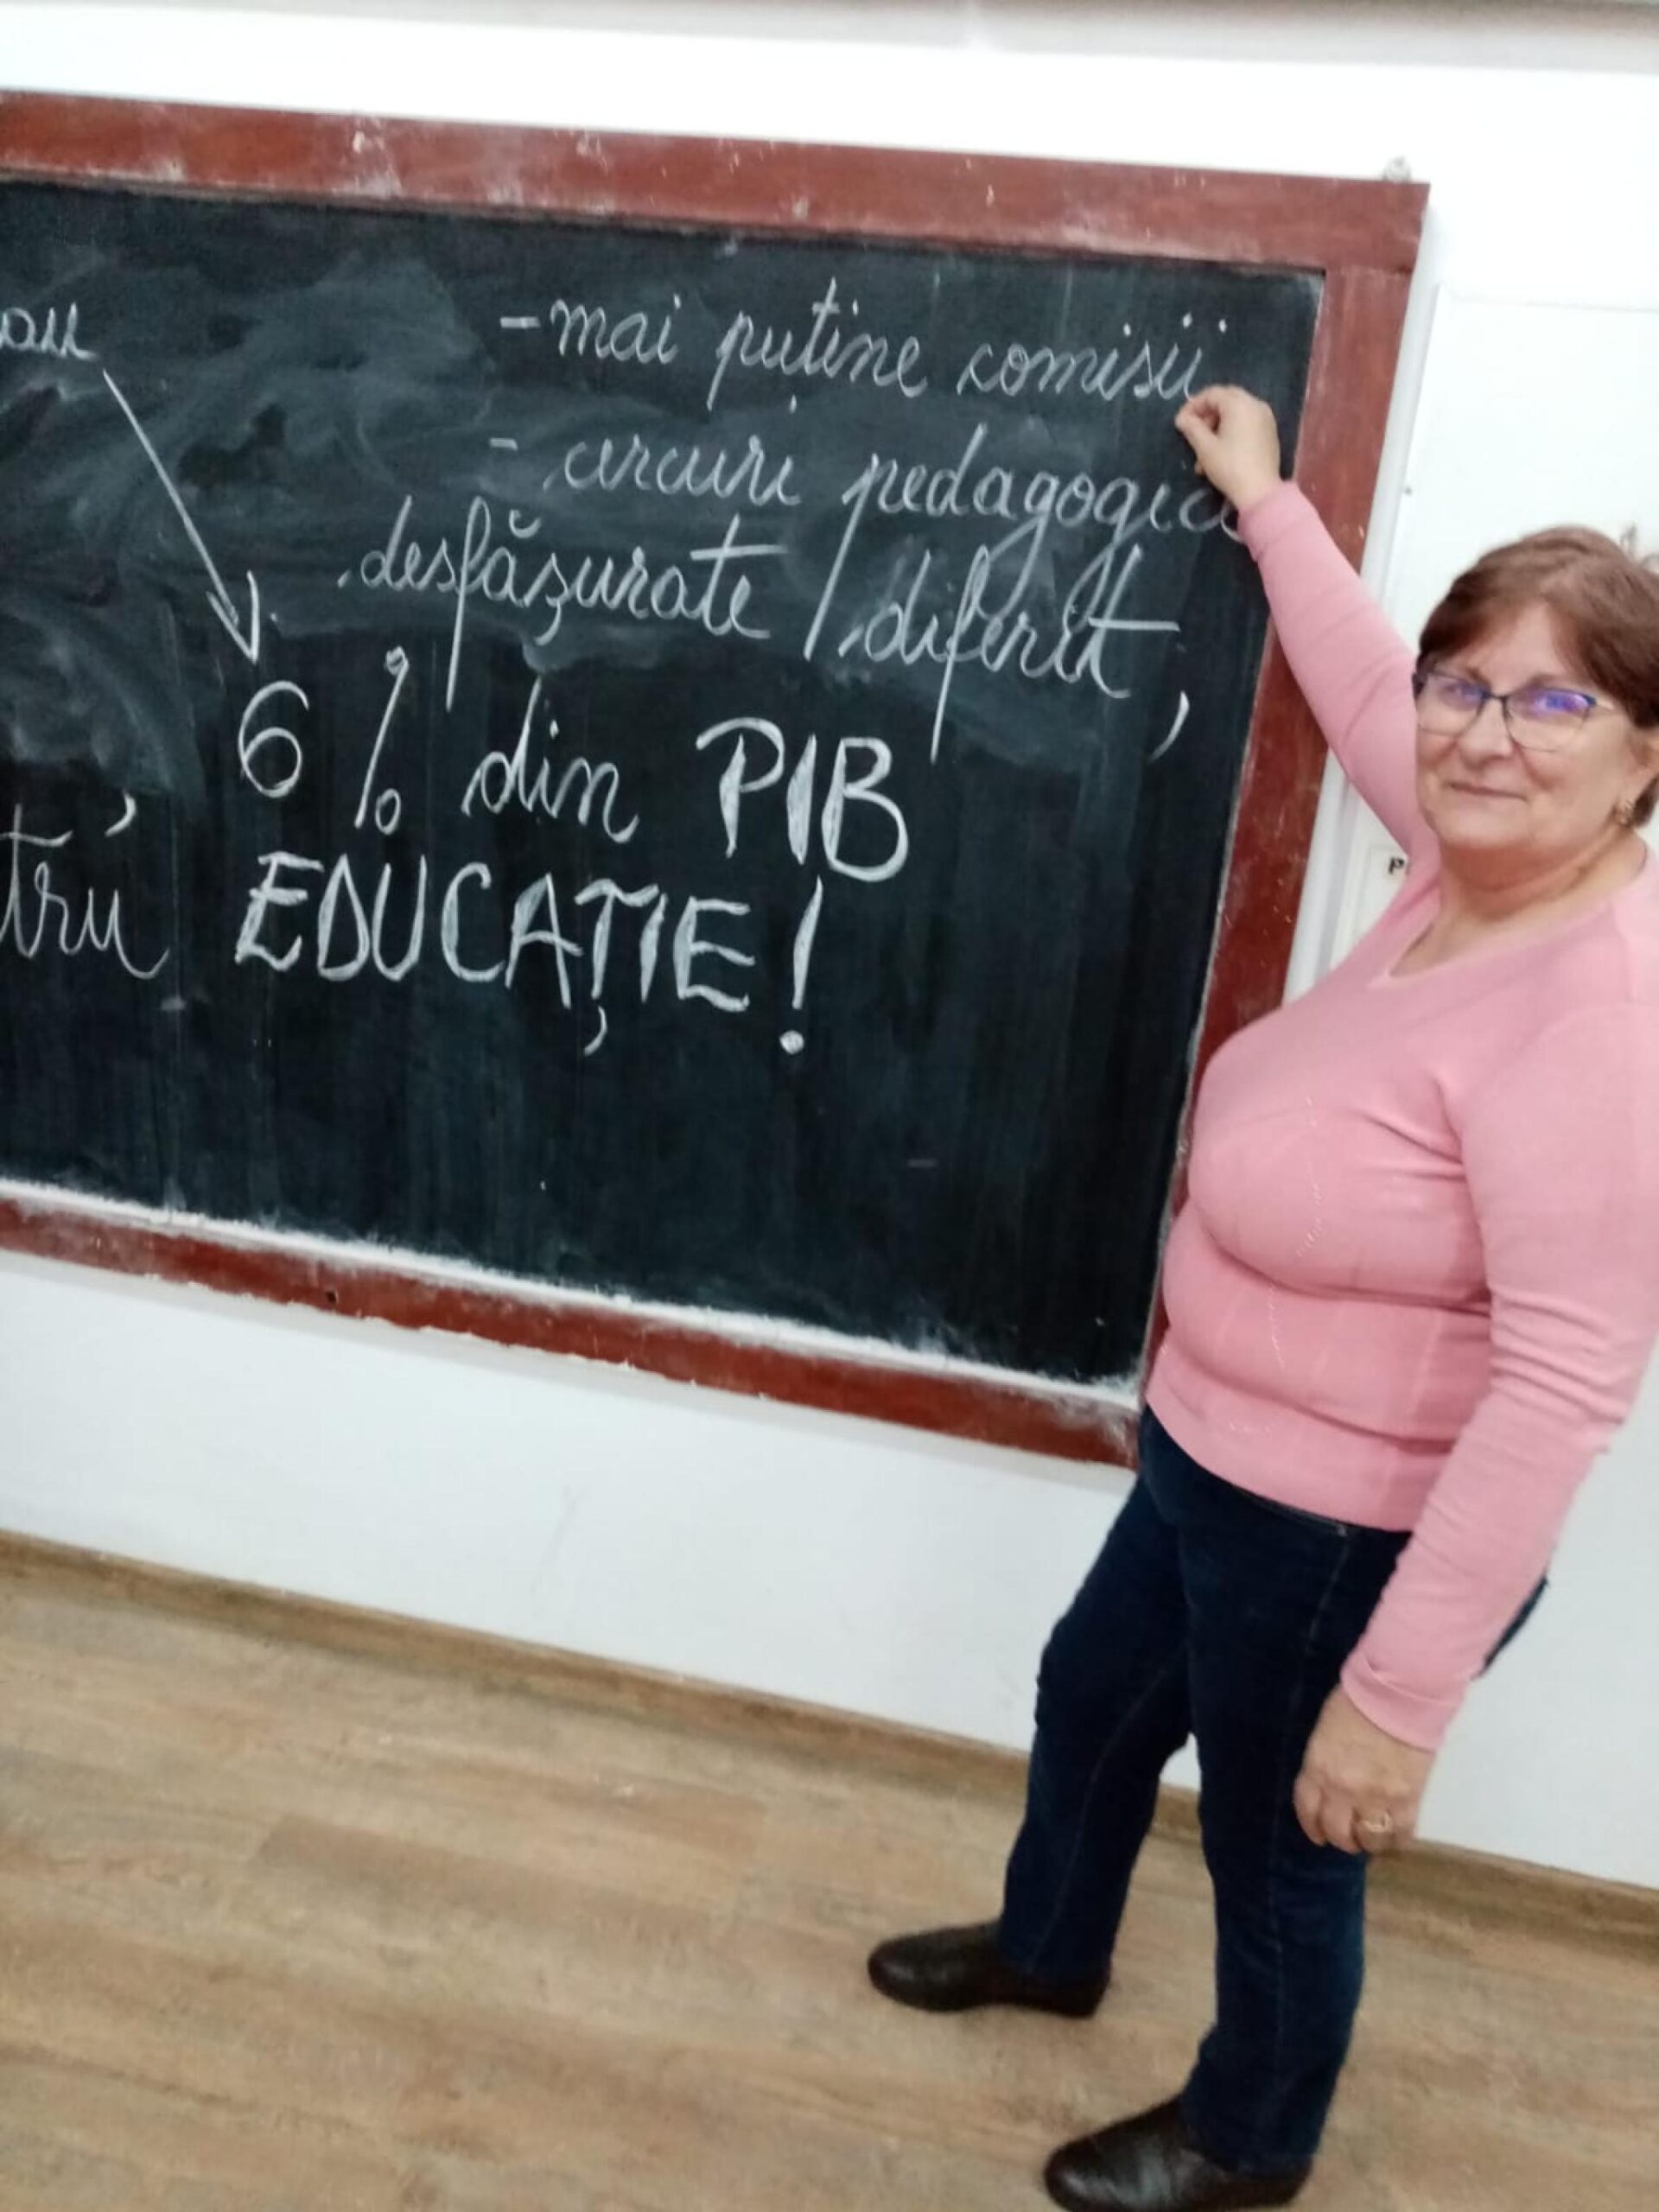 - mai puține comisii
- cercuri pedagogice
desfășurate diferit,
6 % din PIB
EDUCAȚIE!